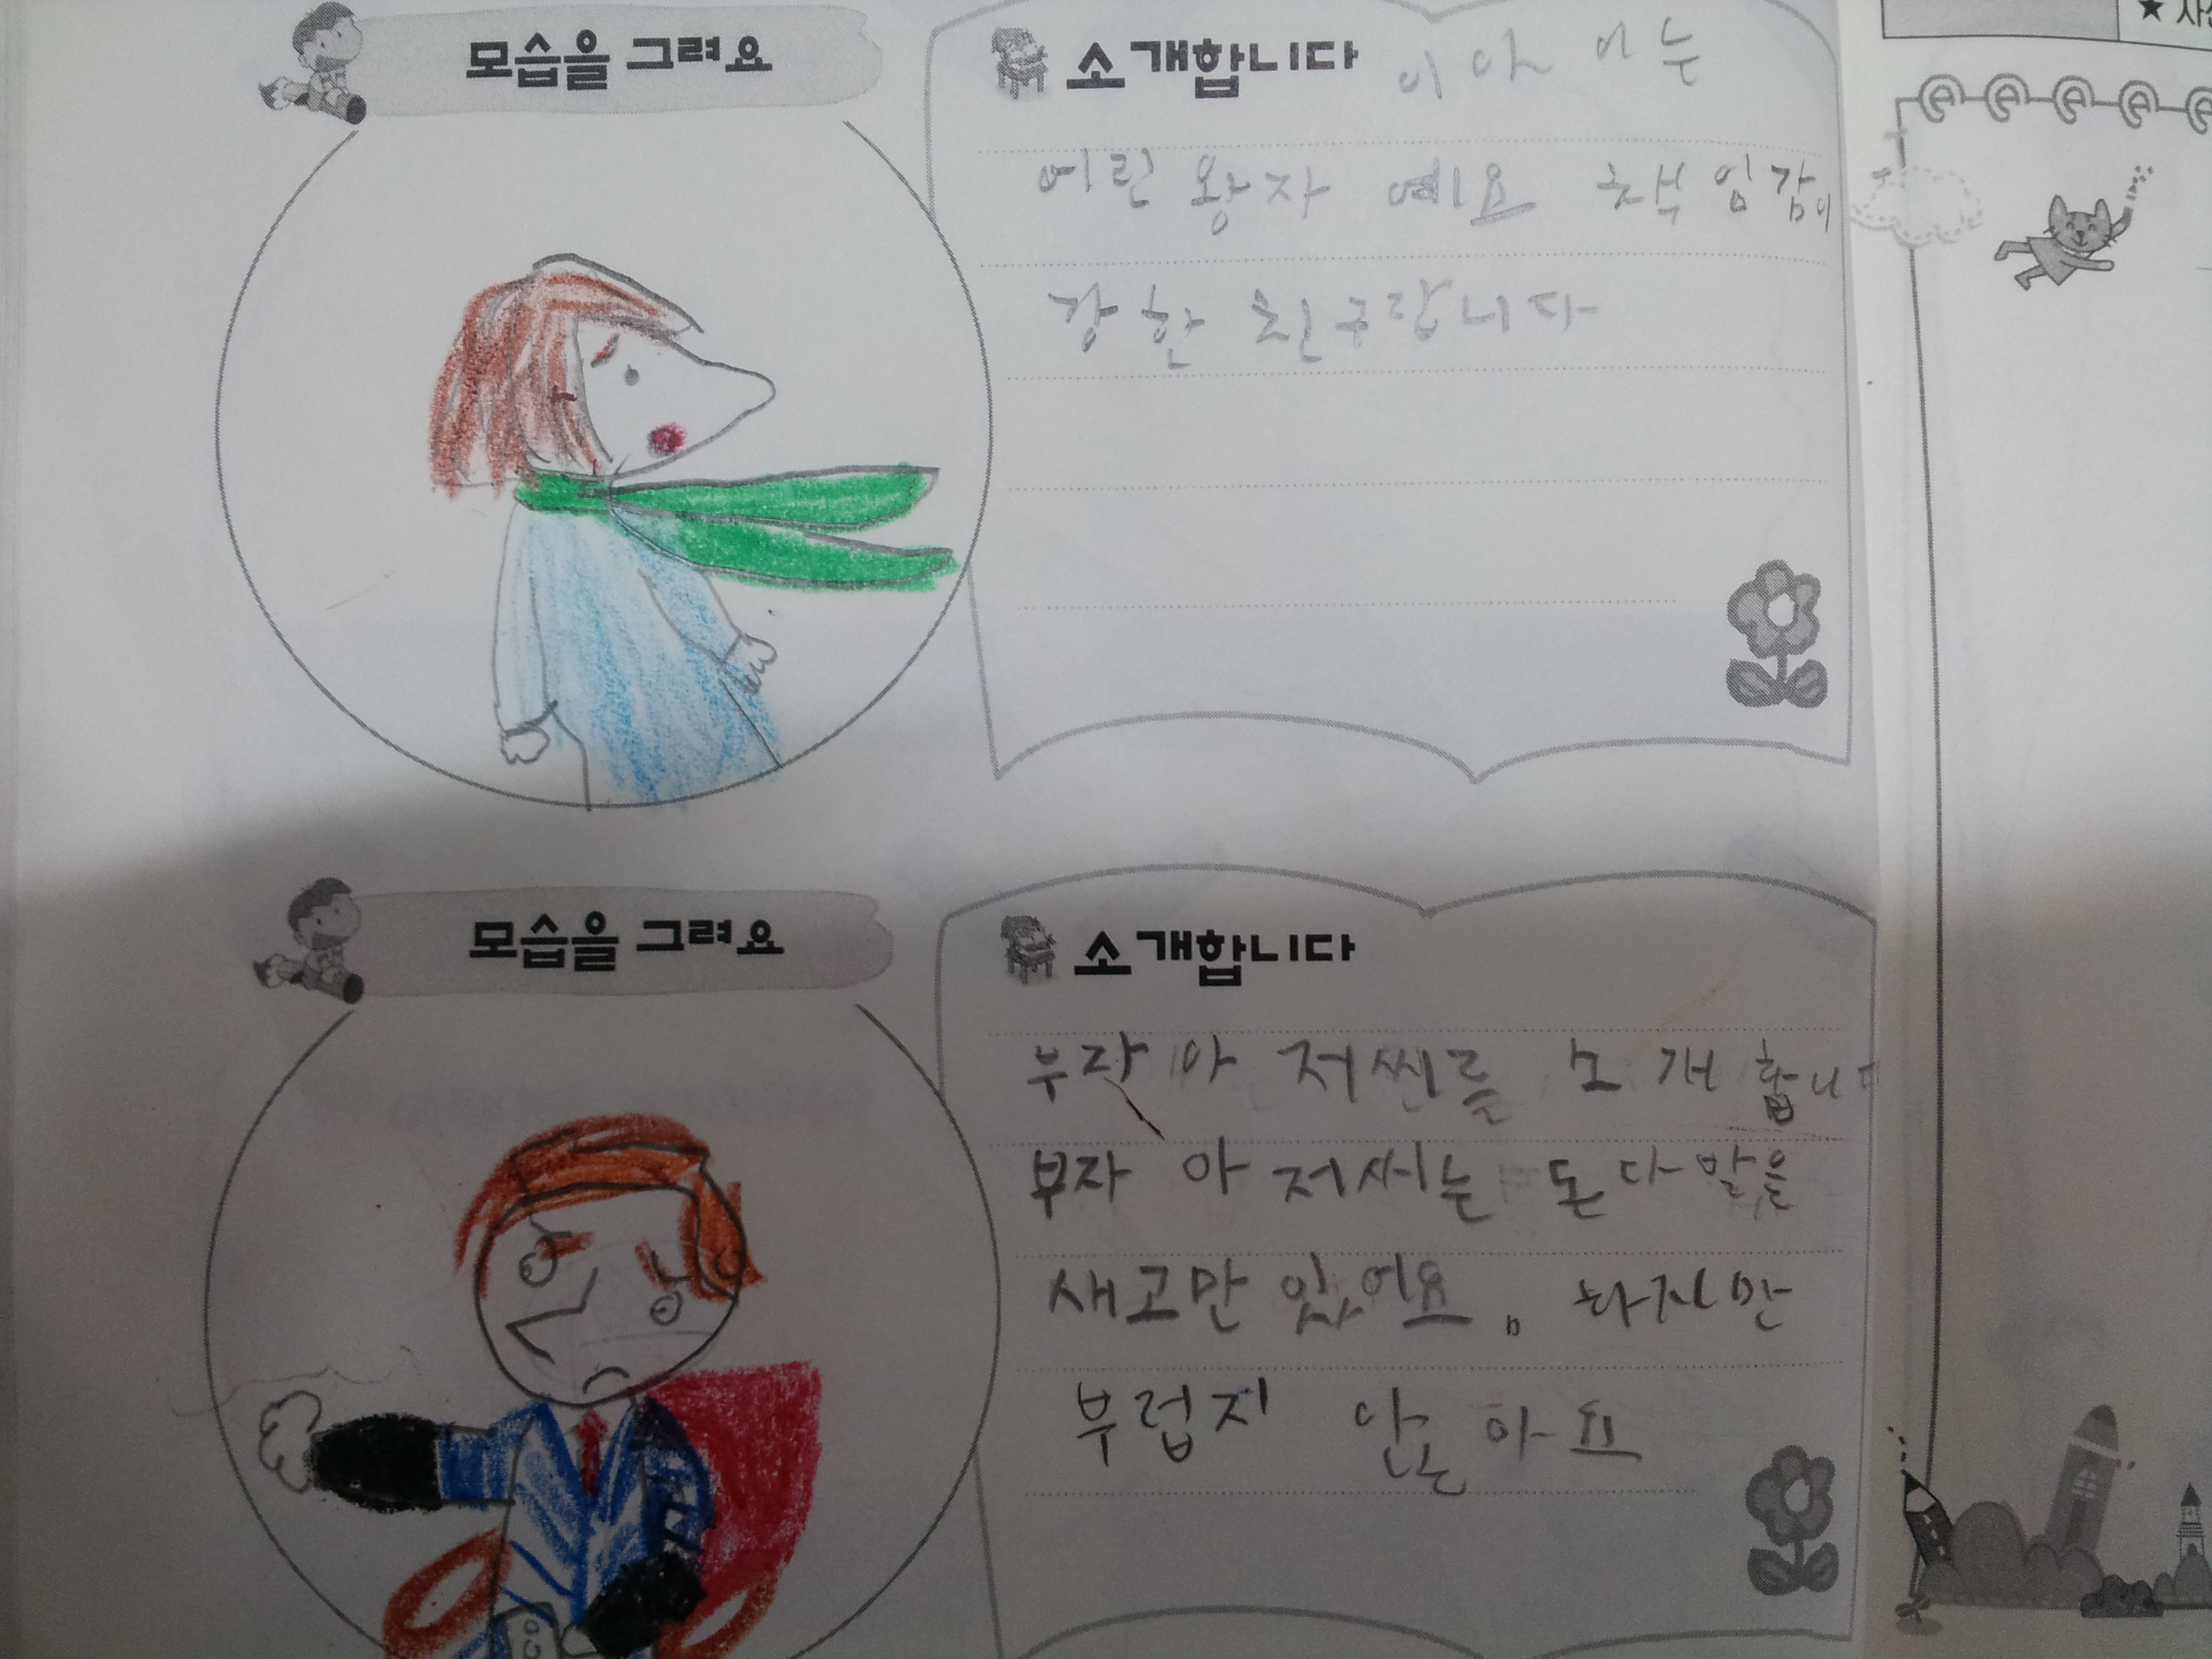 ★ 사
모습을 그려요
소개합니다 이 아 이는
어린 왕자 예요 책임감이
강한 친구랍니다
모습을 그려요
소개합니다
부자 아저씨를 소개합니다
부자 아저씨는 돈다발을
새고만 있어요. 하지만
부럽지 않아요